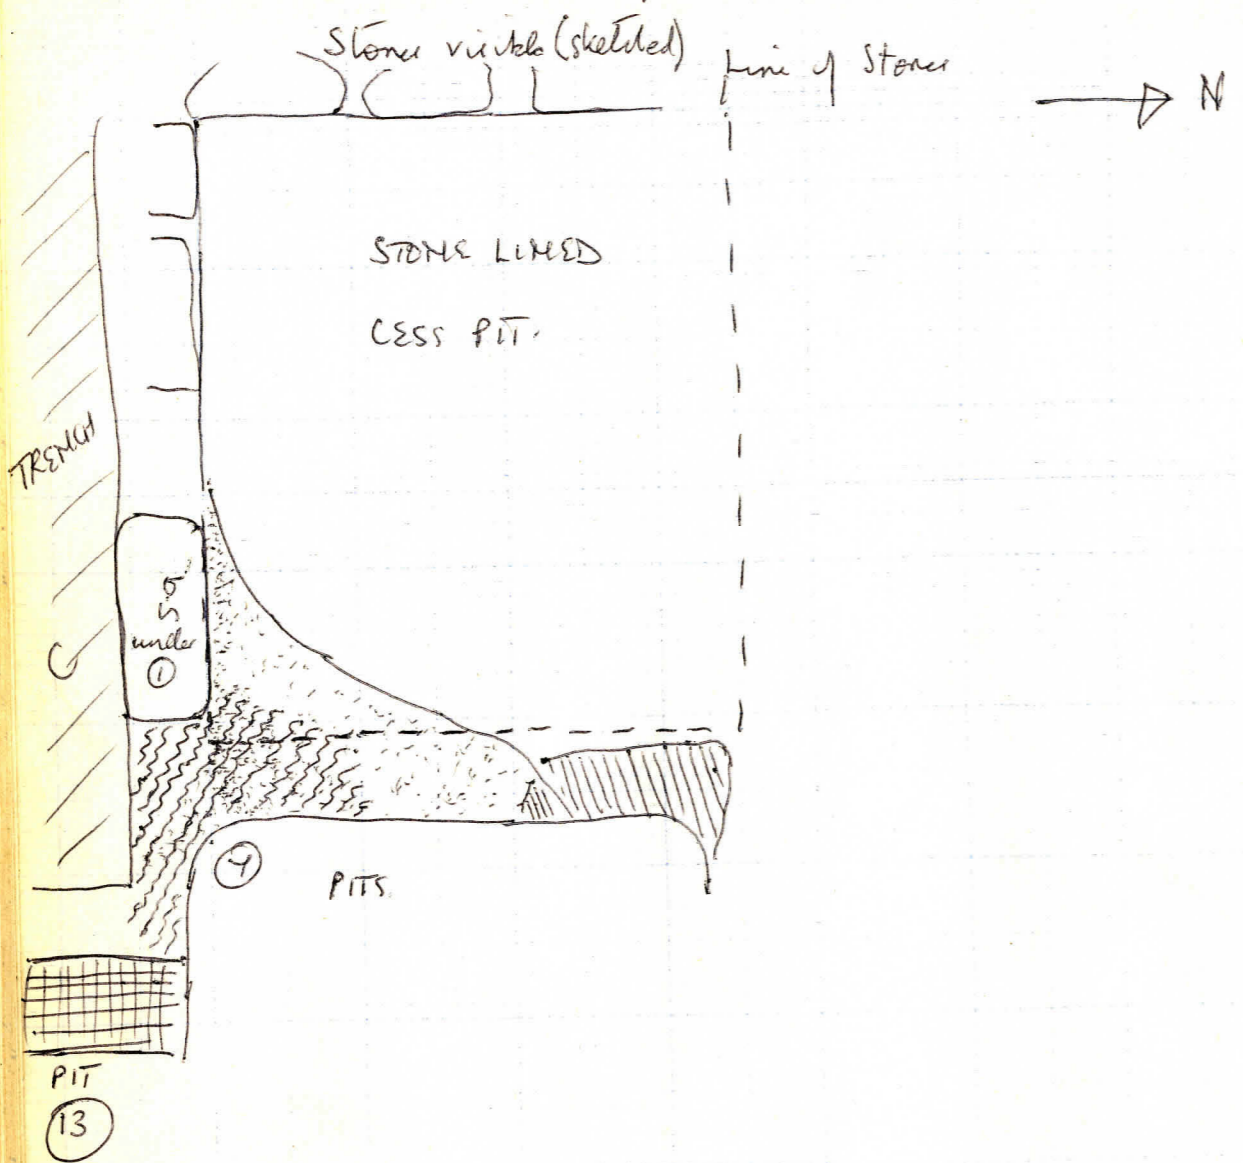 Stones visible (sketched)
Line of Stones
N
STONE LINED
CESS PIT.
TRENCH
C
under
①
④
PITS
PIT
⑬